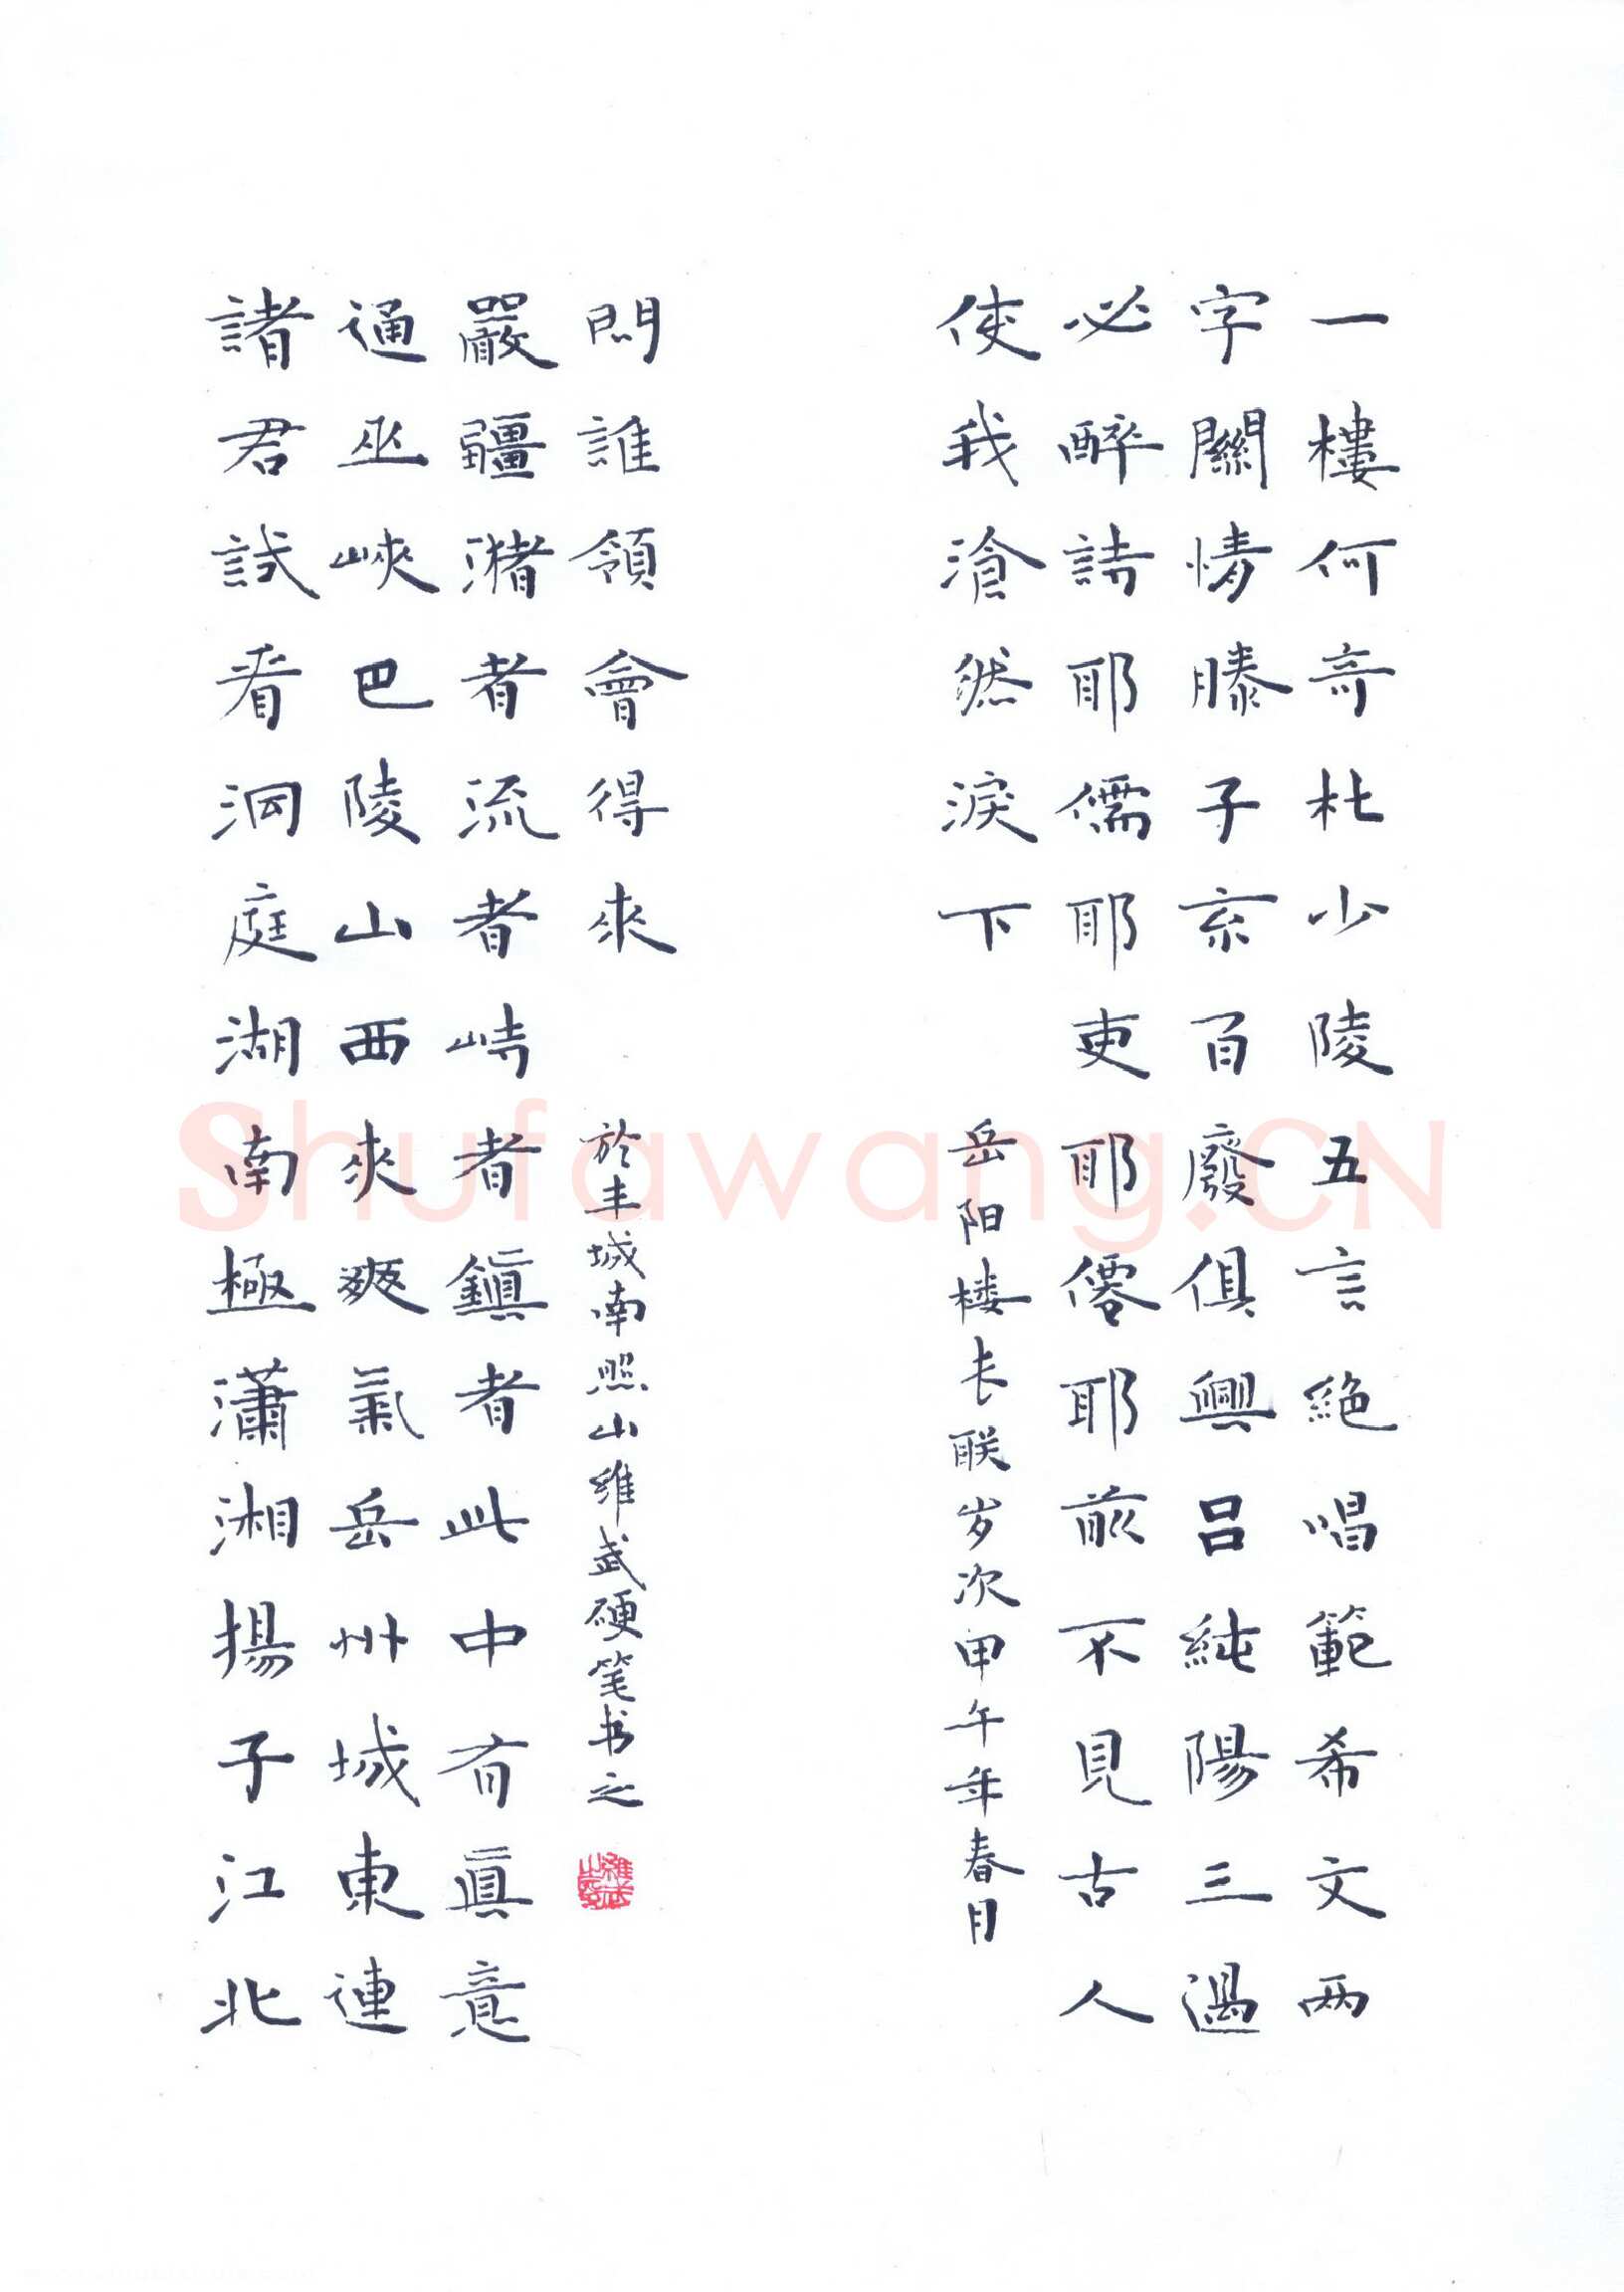 一樓何奇杜少陵五言絶唱範希文两
字關情滕子京百廢俱興呂純陽三過
必醉詩耶儒耶吏耶僊耶前不見古人
使我滄然淚下
岳阳楼长联岁次甲午年春月
諸君試看洞庭湖南極瀟湘揚子江北
通巫峽巴陵山西來爽氣岳州城東連
嚴疆瀦者流者峙者鎮者此中有眞意
問誰領會得來
於丰城南照山維武硬笔书之
Shufawang.CN